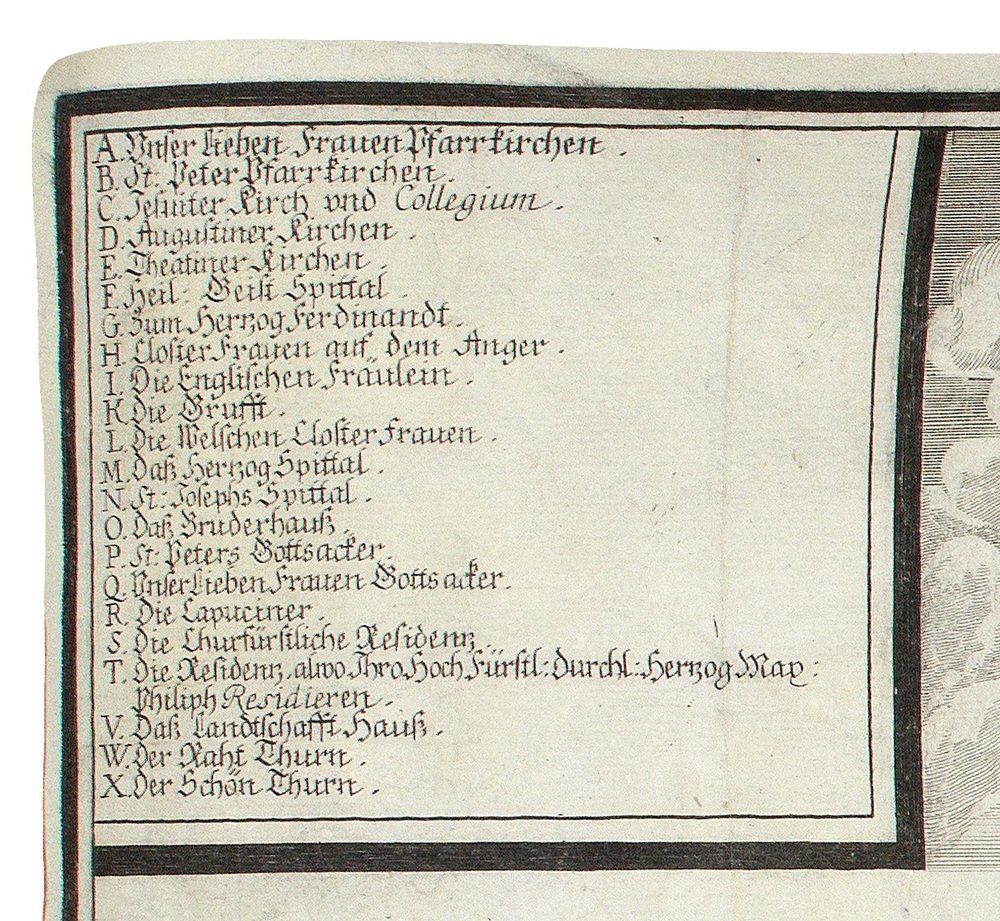 A. Vnser lieben Frauen Pfarrkirchen .
B. St. Peter Pfarrkirchen .
C. Jesuiter Kirch vnd Collegium .
D. Augustiner Kirchen .
E. Theatiner Kirchen .
F. Heil: Geist Spittal .
G. Zum Hertzog Ferdinandt .
H. Closter Frauen auf dem Anger .
I. Die Englischen Fräulein .
K. Die Grufft .
L. Die Welschen Closter Frauen .
M. Daß Hertzog Spittal .
N. St: Josephs Spittal .
O. Daß Bruderhauß .
P. St. Peters Gottsacker .
Q. Vnser lieben Frauen Gottsacker .
R. Die Capuciner .
S. Die Churfürstliche Residentz .
T. Die Residentz, alwo Ihro Hoch Fürstl: Durchl: Hertzog Max:
Philiph Residieren .
V. Daß Landtschafft Hauß .
W. Der Raht Thurn .
X. Der Schön Thurn .